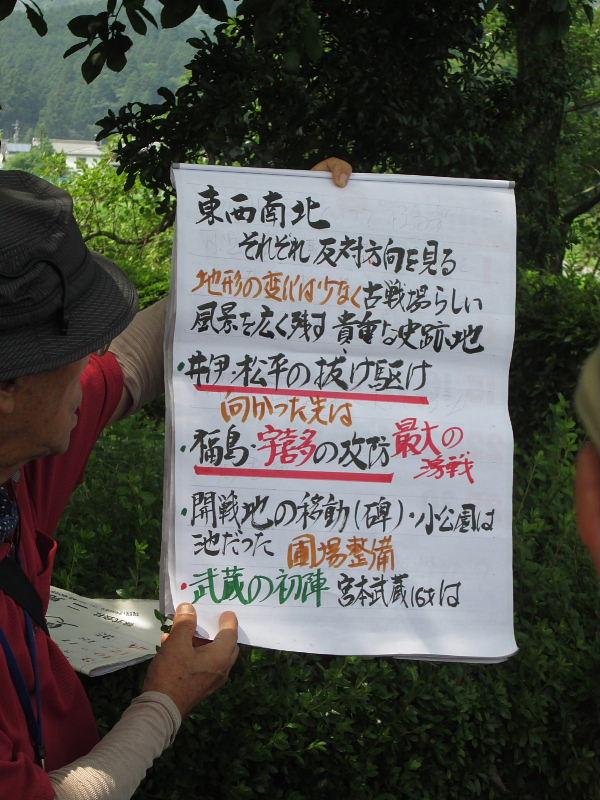 東西南北
それぞれ反対方向を見る
地形の変化は少なく古戦場らしい
風景を広く残す貴重な史跡地
・井伊・松平の抜け駆け
向かった先は
・福島・宇喜多の攻防 最大の
激戦
・開戦地の移動(碑)・小公園は
池だった 圃場整備
・武蔵の初陣 宮本武蔵16才は
株式会社